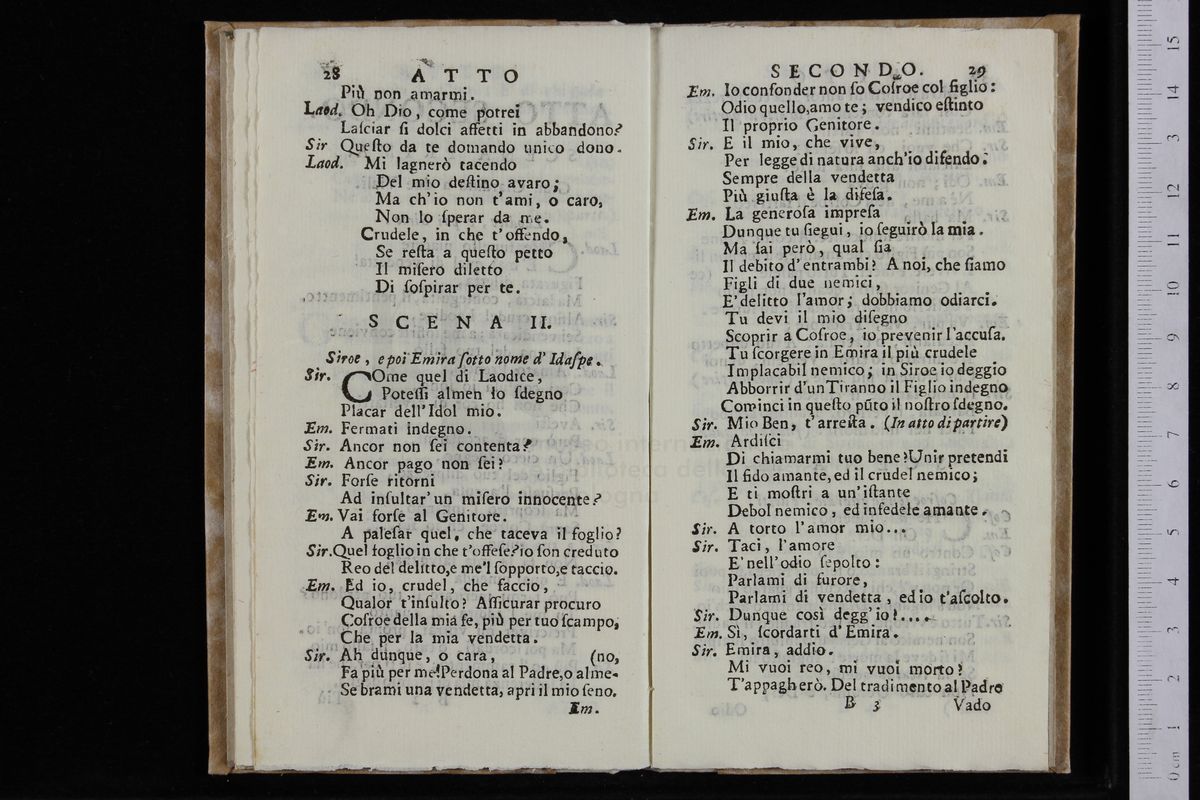 28 ATTO
Più non amarmi.
Laod. Oh Dio, come potrei
Laſciar ſi dolci affetti in abbandono?
Sir Queſto da te domando unico dono.
Laod. Mi lagnerò tacendo
Del mio deſtino avaro;
Ma ch'io non t'ami, o caro,
Non lo ſperar da me.
Crudele, in che t'offendo,
Se reſta a queſto petto
Il miſero diletto
Di ſoſpirar per te.
SCENA II.
Siroe, e poi Emira ſotto nome d'Idaſpe.
Sir. COme quel di Laodice,
Poteſſi almen lo ſdegno
Placar dell'Idol mio.
Em. Fermati indegno.
Sir. Ancor non ſei contenta?
Em. Ancor pago non ſei?
Sir. Forſe ritorni
Ad inſultar'un miſero innocente?
Em. Vai forſe al Genitore.
A paleſar quel, che taceva il foglio?
Sir. Quel foglio in che t'offeſe? io ſon creduto
Reo del delitto, e me'l ſopporto, e taccio.
Em. Ed io, crudel, che faccio,
Qualor t'inſulto? Aſſicurar procuro
Coſroe della mia fe, più per tuo ſcampo,
Che per la mia vendetta.
Sir. Ah dunque, o cara, (no,
Fa più per me! Perdona al Padre, o al me-
Se brami una vendetta, apri il mio ſeno.
Em.
SECONDO. 29
Em. Io confonder non ſo Coſroe col figlio:
Odio quello, amo te; vendico eſtinto
Il proprio Genitore.
Sir. E il mio, che vive,
Per legge di natura anch'io difendo.
Sempre della vendetta
Più giuſta è la difeſa.
Em. La generoſa impreſa
Dunque tu ſiegui, io ſeguirò la mia.
Ma ſai però, qual ſia
Il debito d'entrambi? A noi, che ſiamo
Figli di due nemici,
E' delitto l'amor; dobbiamo odiarci.
Tu devi il mio diſegno
Scoprir a Coſroe, io prevenir l'accuſa.
Tu ſcorgere in Emira il più crudele
Implacabil nemico; in Siroe io deggio
Abborrir d'un Tiranno il Figlio indegno
Cominci in queſto pũto il noſtro ſdegno.
Sir. Mio Ben, t'arreſta. (In atto di partire)
Em. Ardiſci
Di chiamarmi tuo bene? Unir pretendi
Il fido amante, ed il crudel nemico;
E ti moſtri a un'iſtante
Debol nemico, ed infedele amante.
Sir. A torto l'amor mio...
Sir. Taci, l'amore
E' nell'odio ſepolto:
Parlami di furore,
Parlami di vendetta, ed io t'aſcolto.
Sir. Dunque così degg'io!....
Em. Sì, ſcordarti d'Emira.
Sir. Emira, addio.
Mi vuoi reo, mi vuoi morto?
T'appagherò. Del tradimento al Padre
B 3 Vado